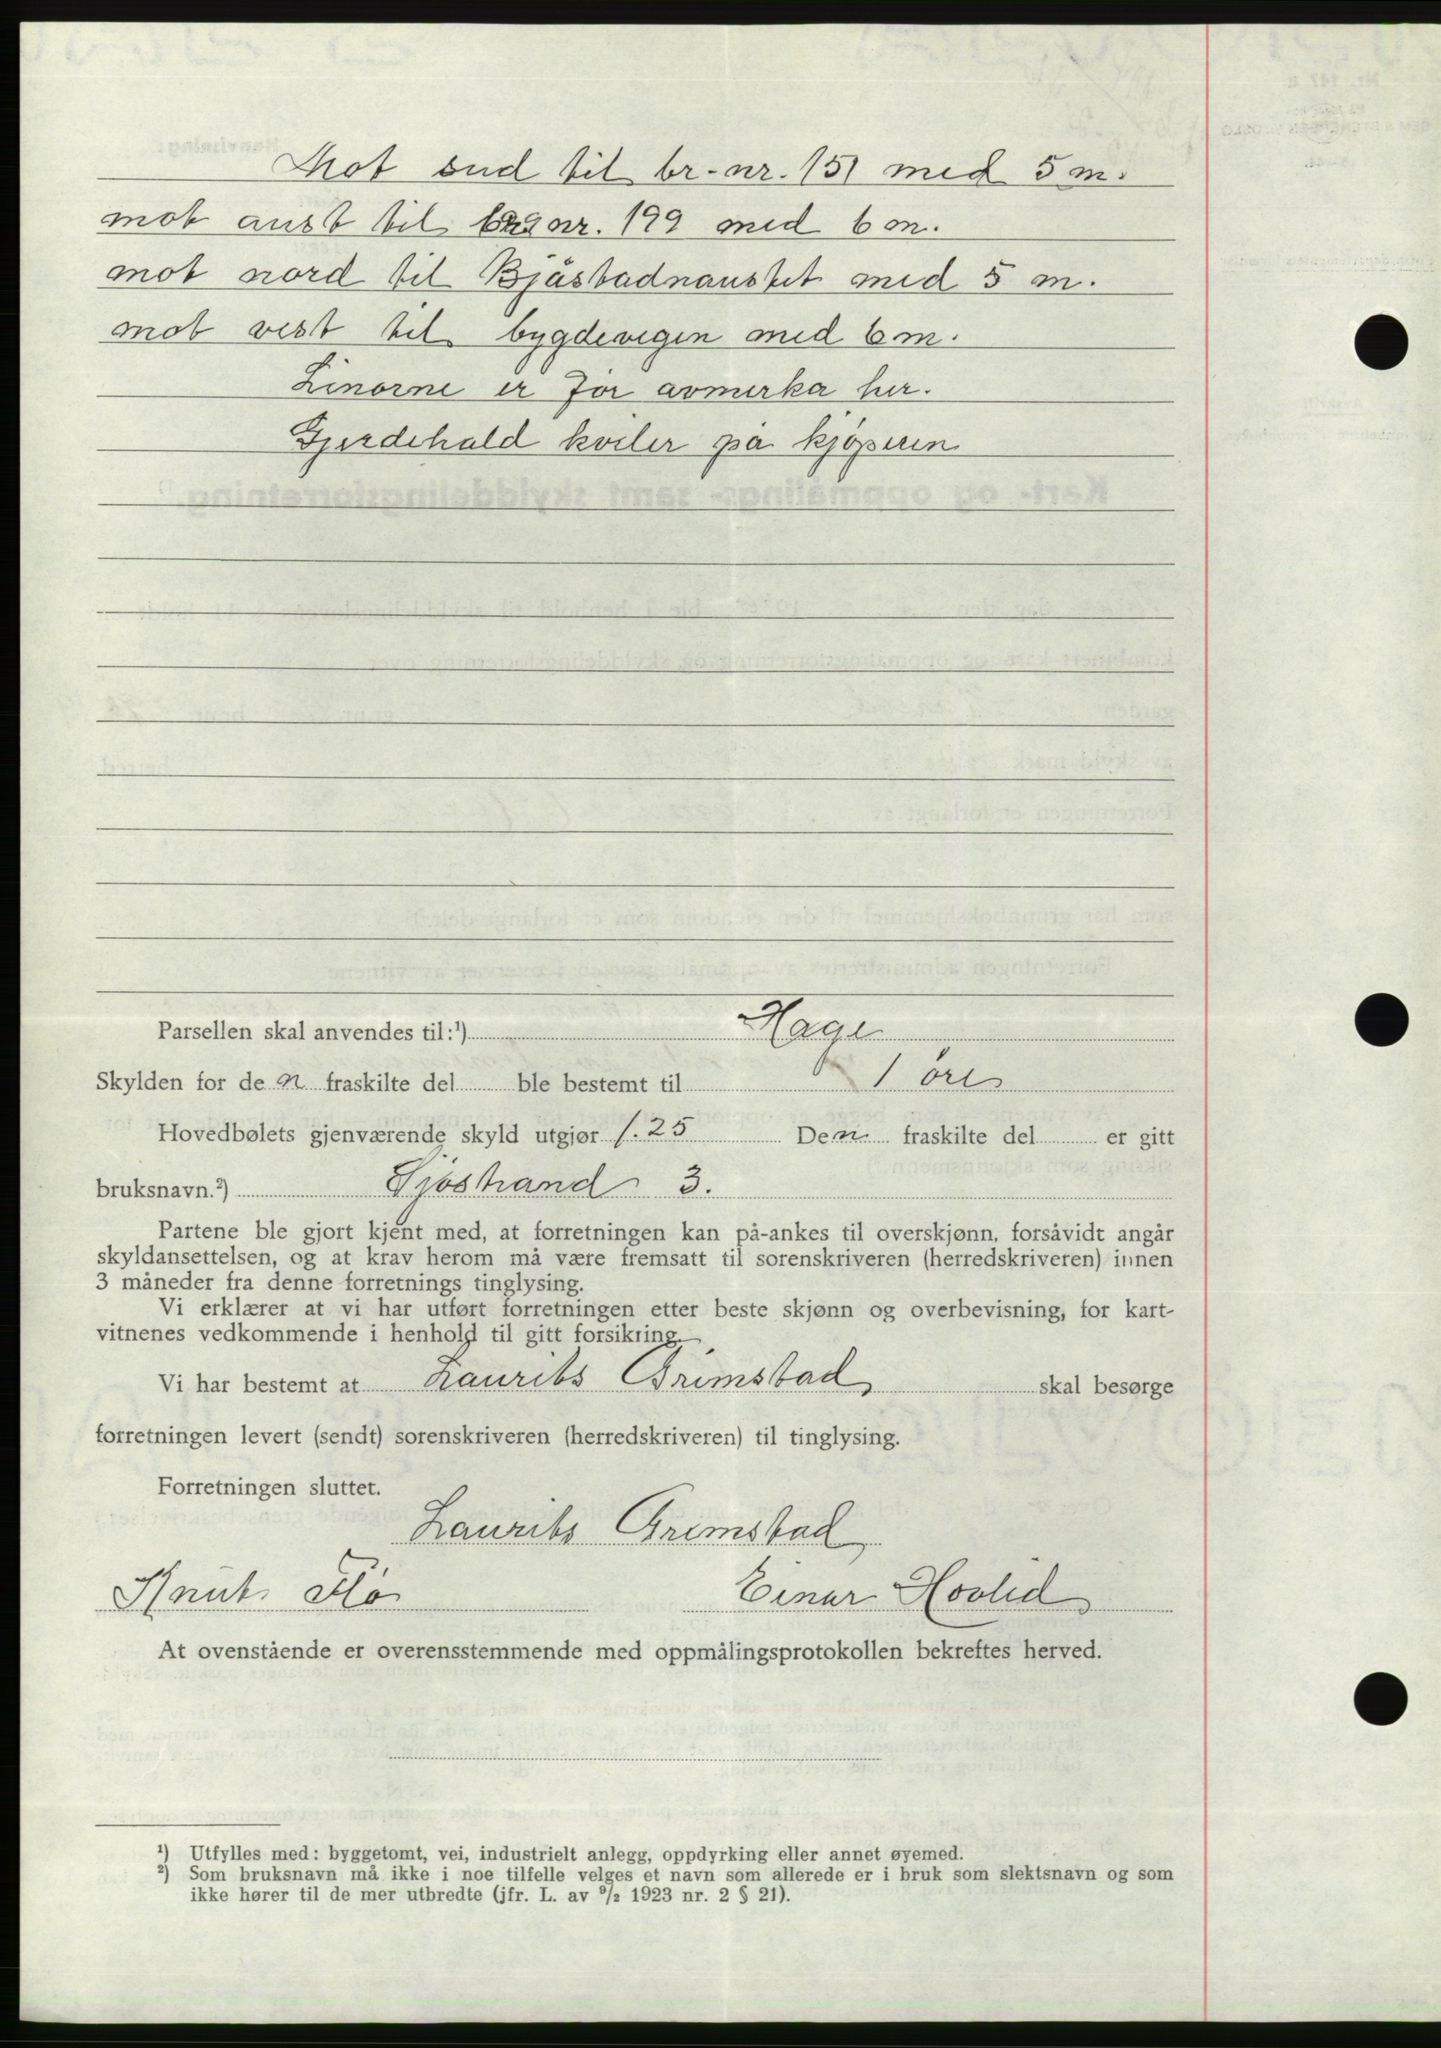 Mot sud til br.nr. 151 med 5 m.
mot aust til nr. 199 med 6 m.
mot nord til Bjåstadnaustet med 5 m.
mot vest til bygdevegen med 6 m.
Linorne er for avmerka her.
Gjerdehald kviler på kjøperen
Parsellen skal anvendes til:¹) Hage
Skylden for den fraskilte del ble bestemt til 1 øre
Hovedbølets gjenværende skyld utgjør 1.25 Den fraskilte del er gitt
bruksnavn.²) Sjøstrand 3.
Partene ble gjort kjent med, at forretningen kan på-ankes til overskjønn, forsåvidt angår
skyldansettelsen, og at krav herom må være fremsatt til sorenskriveren (herredskriveren) innen
3 måneder fra denne forretnings tinglysing.
Vi erklærer at vi har utført forretningen etter beste skjønn og overbevisning, for kart-
vitnenes vedkommende i henhold til gitt forsikring.
Vi har bestemt at Laurits Grimstad skal besørge
forretningen levert (sendt) sorenskriveren (herredskriveren) til tinglysing.
Forretningen sluttet.
Laurits Grimstad
Knut Flø Einar Hovlid
At ovenstående er overensstemmende med oppmålingsprotokollen bekreftes herved.
¹) Utfylles med: byggetomt, vei, industrielt anlegg, oppdyrking eller annet øyemed.
²) Som bruksnavn må ikke i noe tilfelle velges et navn som allerede er i bruk som slektsnavn og som
ikke hører til de mer utbredte (jfr. L. av 9/2 1923 nr. 2 § 21).